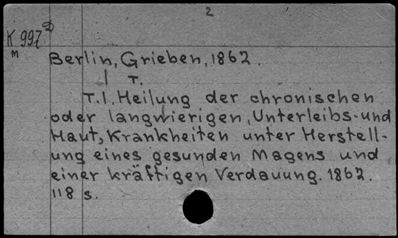 2
K 997
m
Berlin, Grieben, 1862.
1 T.
T.1. Heilung der chronischen
oder langwierigen, Unterleibs- und
Haut, Krankheiten unter Herstell-
ung eines gesunden Magens und
einer kräftigen Verdauung. 1862.
118 s.